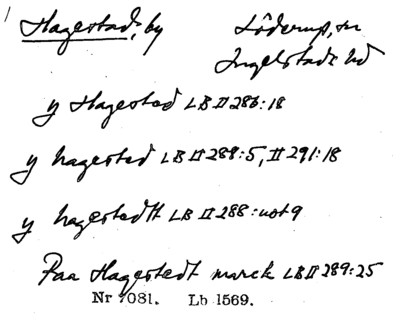 Hagestad, by Löderup, sn
Ingelstads hd
y Hagested LB II 286:18
y hagested LB II 289:5, II 291:18
y hagestedtt LB II 288: not 9
Paa Hagestedt marck LB II 289:25
Nr 7081. Lb 1569.